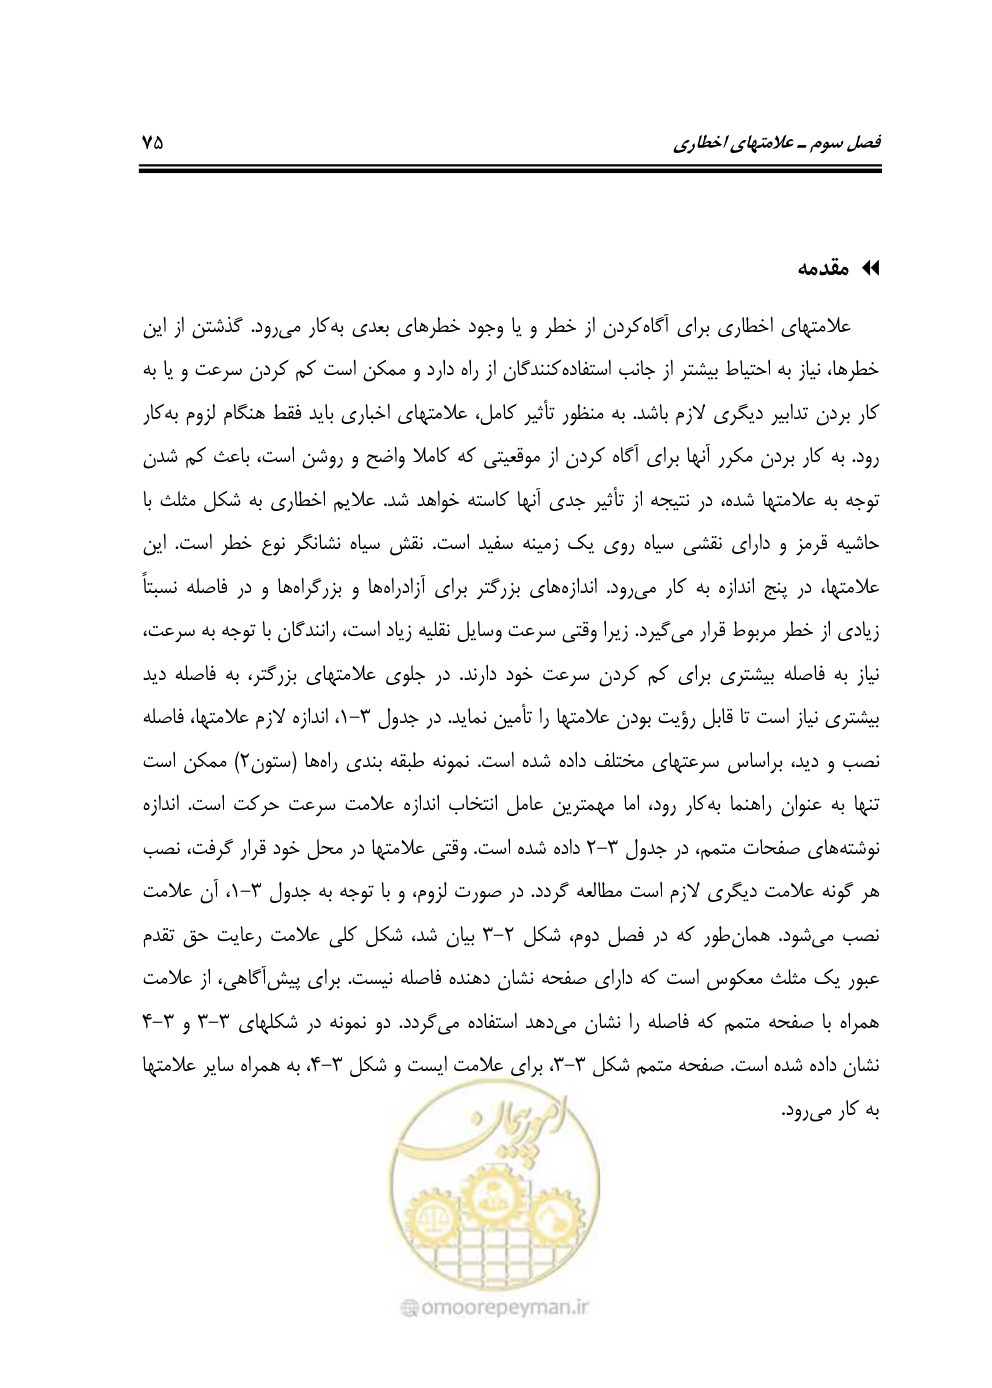 فصل سوم ـ علامتهای اخطاری ۷۵
مقدمه
علامتهای اخطاری برای آگاه‌کردن از خطر و یا وجود خطرهای بعدی به‌کار می‌رود. گذشتن از این
خطرها، نیاز به احتیاط بیشتر از جانب استفاده‌کنندگان از راه دارد و ممکن است کم کردن سرعت و یا به
کار بردن تدابیر دیگری لازم باشد. به منظور تأثیر کامل، علامتهای اخباری باید فقط هنگام لزوم به‌کار
رود. به کار بردن مکرر آنها برای آگاه کردن از موقعیتی که کاملا واضح و روشن است، باعث کم شدن
توجه به علامتها شده، در نتیجه از تأثیر جدی آنها کاسته خواهد شد. علایم اخطاری به شکل مثلث با
حاشیه قرمز و دارای نقشی سیاه روی یک زمینه سفید است. نقش سیاه نشانگر نوع خطر است. این
علامتها، در پنج اندازه به کار می‌رود. اندازه‌های بزرگتر برای آزادراه‌ها و بزرگراه‌ها و در فاصله نسبتاً
زیادی از خطر مربوط قرار می‌گیرد. زیرا وقتی سرعت وسایل نقلیه زیاد است، رانندگان با توجه به سرعت،
نیاز به فاصله بیشتری برای کم کردن سرعت خود دارند. در جلوی علامتهای بزرگتر، به فاصله دید
بیشتری نیاز است تا قابل رؤیت بودن علامتها را تأمین نماید. در جدول ۳-۱، اندازه لازم علامتها، فاصله
نصب و دید، براساس سرعتهای مختلف داده شده است. نمونه طبقه بندی راه‌ها (ستون۲) ممکن است
تنها به عنوان راهنما به‌کار رود، اما مهمترین عامل انتخاب اندازه علامت سرعت حرکت است. اندازه
نوشته‌های صفحات متمم، در جدول ۳-۲ داده شده است. وقتی علامتها در محل خود قرار گرفت، نصب
هر گونه علامت دیگری لازم است مطالعه گردد. در صورت لزوم، و با توجه به جدول ۳-۱، آن علامت
نصب می‌شود. همان‌طور که در فصل دوم، شکل ۲-۳ بیان شد، شکل کلی علامت رعایت حق تقدم
عبور یک مثلث معکوس است که دارای صفحه نشان دهنده فاصله نیست. برای پیش‌آگاهی، از علامت
همراه با صفحه متمم که فاصله را نشان می‌دهد استفاده می‌گردد. دو نمونه در شکلهای ۳-۳ و ۳-۴
نشان داده شده است. صفحه متمم شکل ۳-۳، برای علامت ایست و شکل ۳-۴، به همراه سایر علامتها
به کار می‌رود.
امور پیمان
@omoorepeyman.ir